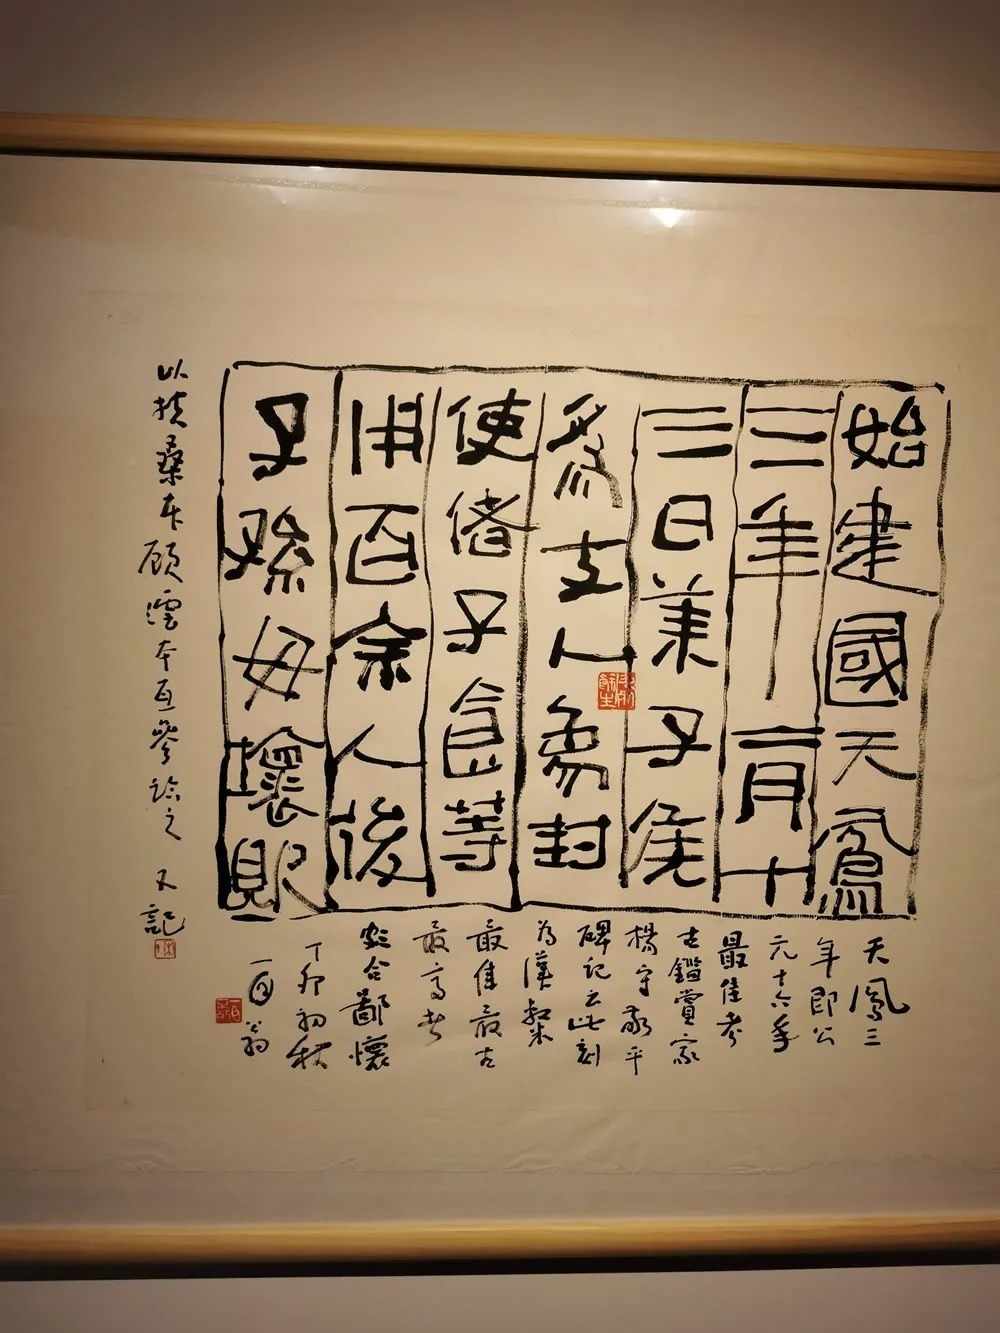 始建國天鳳
三年二月十
三日萊子侯
為支人為封
使偖子食等
用百余人後
子孫毋壞敗
天鳳三
年即公
元十六年
最佳考
古鑑賞家
楊守敬平
碑記云此刻
為漢隸
最佳最古
最高者
合鄙懷
丁卯初秋
翁
以扶桑本顧澐本互參之 又記